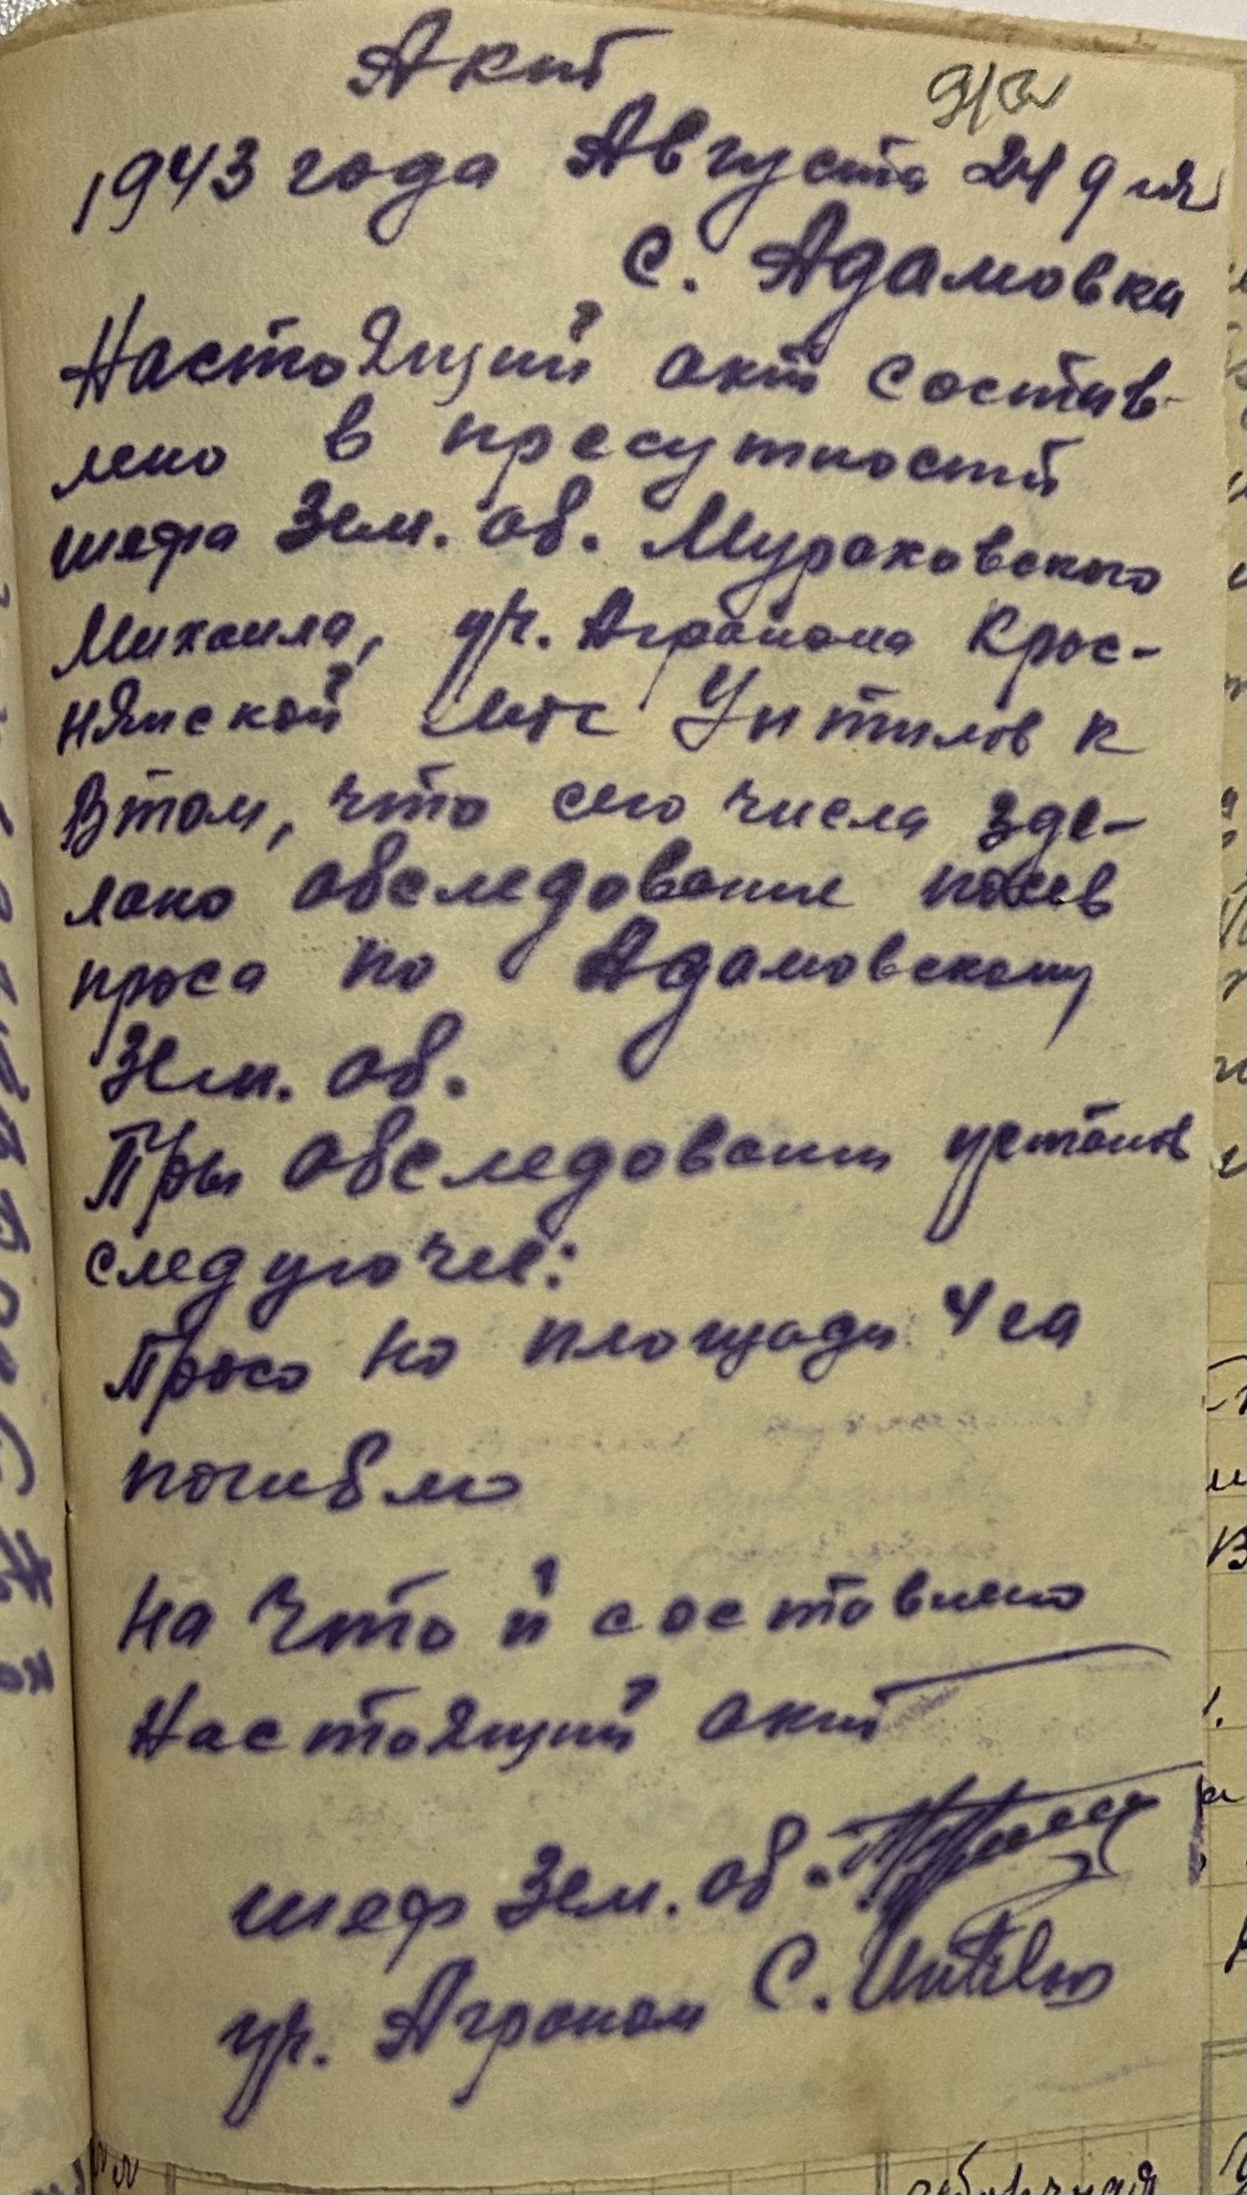 Акт
1943 года Августа 24 дня
с. Адамовка
Настоящий акт составлено
лено в пресутности
шефа Зем. об. Мураховского
Михаила, уч. Агронома Крос-
нянской мтс Унтилов К
В том, что сего числа зде-
лано обследование посев
проса по Адамовскому
Зем. об.
Пры обследовании установ
следуючее:
Просо на площади 4 га
погибло
на что й составлено
Настоящий акт
шеф Зем. об.
уч. Агроном С. Untilov